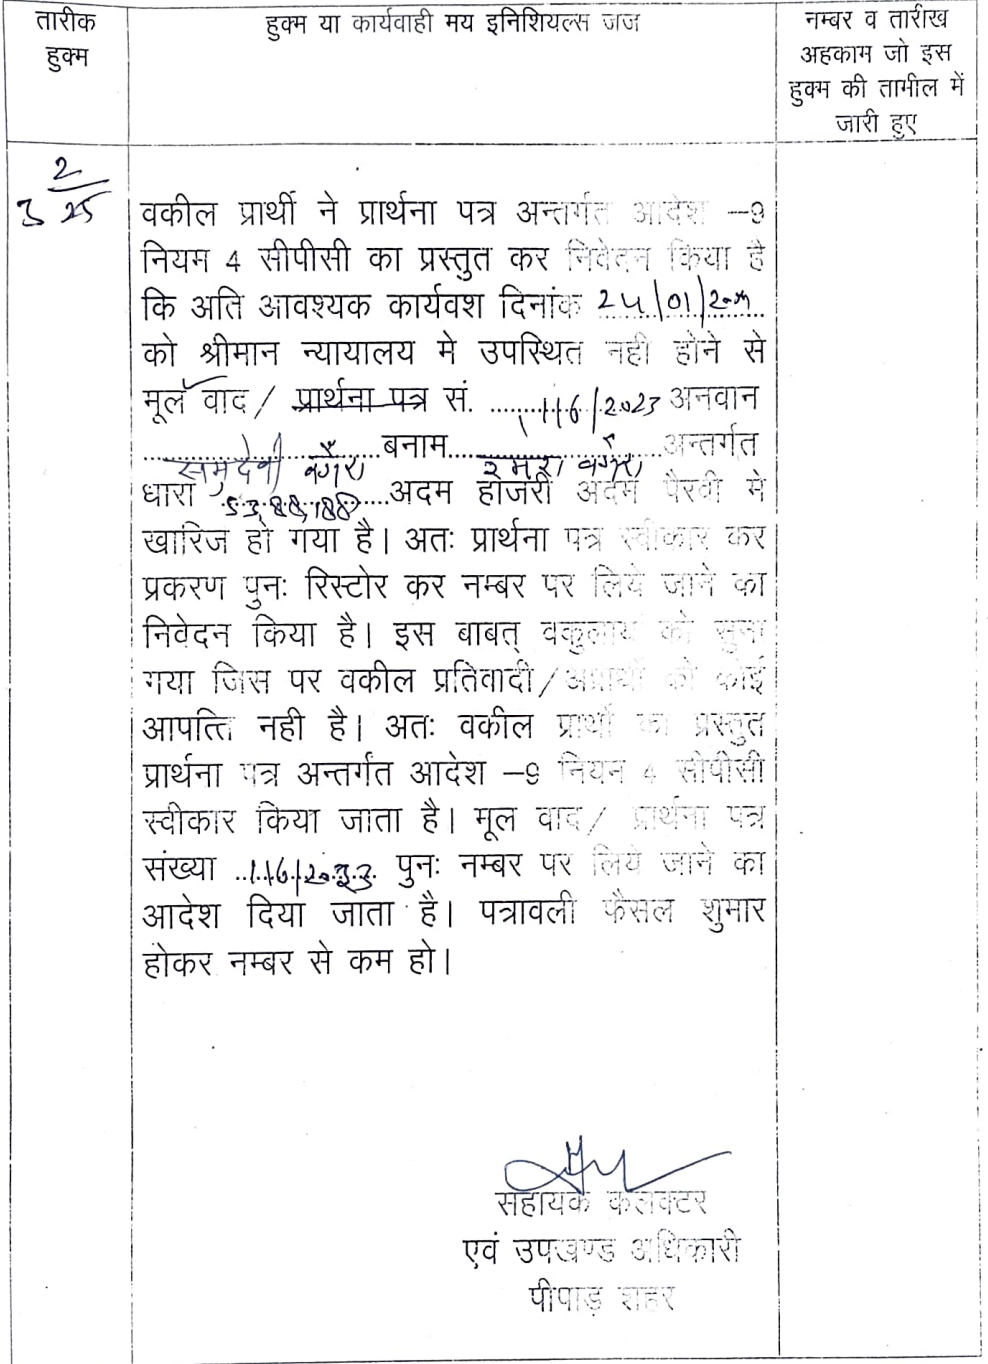 तारीक
हुक्म
हुक्म या कार्यवाही मय इनिशियल्स जज
नम्बर व तारीख
अहकाम जो इस
हुक्म की तामील में
जारी हुए
3 2/25
वकील प्रार्थी ने प्रार्थना पत्र अन्तर्गत आदेश –9
नियम 4 सीपीसी का प्रस्तुत कर निवेदन किया है
कि अति आवश्यक कार्यवश दिनांक 24/01/
को श्रीमान न्यायालय मे उपस्थित नही होने से
मूल वाद / प्रार्थना पत्र सं. 116/2023 अनवान
समुदेवी वगैरा बनाम वगैरा अन्तर्गत
धारा 53,88,188 अदम हाजरी अदम पैरवी मे
खारिज हो गया है। अतः प्रार्थना पत्र स्वीकार कर
प्रकरण पुनः रिस्टोर कर नम्बर पर लिये जाने का
निवेदन किया है। इस बाबत् वकुलाय को सुना
गया जिस पर वकील प्रतिवादी / अप्रार्थी को कोई
आपत्ति नही है। अतः वकील प्रार्थी का प्रस्तुत
प्रार्थना पत्र अन्तर्गत आदेश –9 नियम 4 सीपीसी
स्वीकार किया जाता है। मूल वाद / प्रार्थना पत्र
संख्या 116/2023 पुनः नम्बर पर लिये जाने का
आदेश दिया जाता है। पत्रावली फैसल शुमार
होकर नम्बर से कम हो।
सहायक कलक्टर
एवं उपखण्ड अधिकारी
पीपाड़ शहर